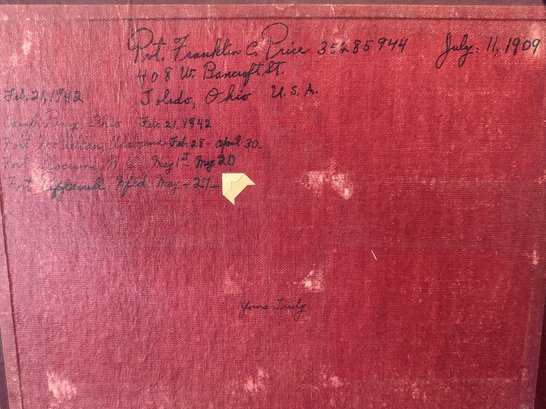 Pvt. Franklin C. Price 35285944 July. 11, 1909
408 W. Bancroft. St.
Feb. 21, 1942 Toledo, Ohio U.S.A.
Camp Perry, Ohio Feb. 21, 1942
Fort McClellan, Alabama Feb. 28 - April 30.
Fort May 1st May 20
Fort Field May - 27 -
Yours Truly